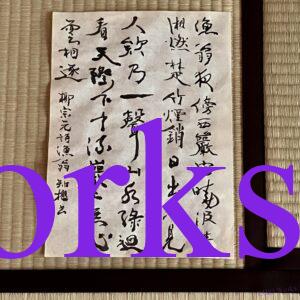 漁翁夜傍西巖宿曉汲清
湘燃楚竹煙銷日出不見
人欸乃一聲山水綠迴
看天際下中流巖上無心
雲相逐 柳宗元詩漁翁
orks